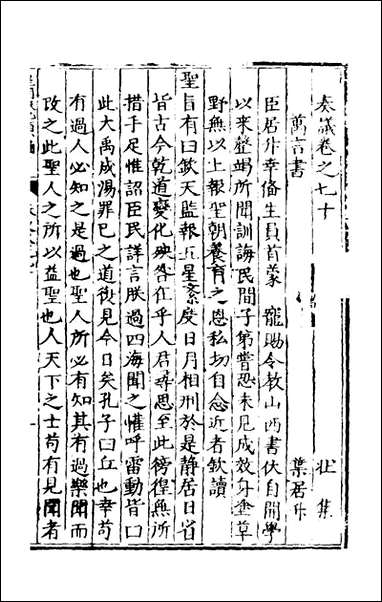 奏議卷之七十 壯集
萬言書 葉居升
臣居升幸備生員首蒙 寵賜令教山西書伏自開學
以來罄竭所聞訓誨民間子弟嘗恐未見成效身塗草
野無以上報聖朝養育之恩私切自念近者欽讀
聖旨有曰欽天監報五星紊度日月相刑於是静居日省
皆古今乾道變化殃咎在乎人君尋思至此徬徨無所
措手足惟詔臣民詳言朕過四海聞之懽呼雷動皆曰
此大禹成湯罪巳之道復見今日矣孔子曰丘也幸苟
有過人必知之是過也聖人所必有知其有過樂聞而
改之此聖人之所以益聖也人天下之士苟有見聞者